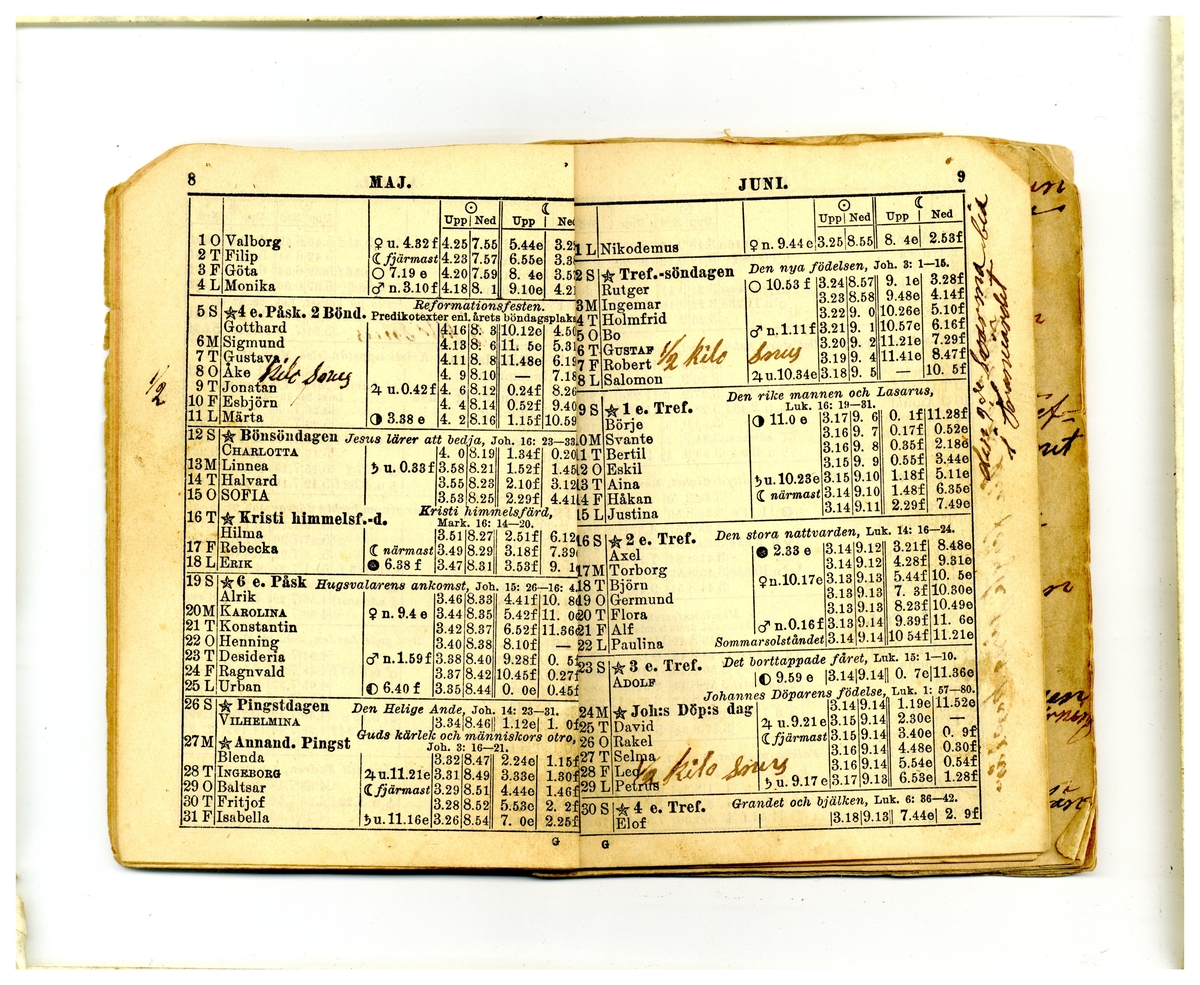 8 MAJ.
Upp Ned Upp Ned
1 O Valborg ♀ u. 4.32 f 4.25 7.55 5.44e
2 T Filip ☾ fjärmast 4.23 7.57 6.55e
3 F Göta ○ 7.19 e 4.20 7.59 8. 4e
4 L Monika ♂ n. 3.10 f 4.18 8. 1 9.10e
5 S ★ 4 e. Påsk. 2 Bönd. Reformationsfesten.
Predikotexter enl. årets böndagsplak
Gotthard 4.16 8. 3 10.12e 4.50
6 M Sigmund 4.13 8. 6 11. 5e
7 T Gustava 4.11 8. 8 11.48e 6.19
1/2 kilo Snus
8 O Åke 4. 9 8.10 — 7.18
9 T Jonatan ♃ u. 0.42 f 4. 6 8.12 0.24f 8.26
10 F Esbjörn 4. 4 8.14 0.52f 9.40
11 L Märta ◑ 3.38 e 4. 2 8.16 1.15f 10.59
12 S ★ Bönsöndagen Jesus lärer att bedja, Joh. 16: 23—33.
CHARLOTTA 4. 0 8.19 1.34f 0.20
13 M Linnea ♄ u. 0.33 f 3.58 8.21 1.52f 1.45
14 T Halvard 3.55 8.23 2.10f 3.12
15 O SOFIA 3.53 8.25 2.29f 4.41
16 T ★ Kristi himmelsf.-d. Kristi himmelsfärd,
Mark. 16: 14—20.
Hilma 3.51 8.27 2.51f 6.12
17 F Rebecka ☾ närmast 3.49 8.29 3.18f 7.39
18 L ERIK ● 6.38 f 3.47 8.31 3.53f 9. 1
19 S ★ 6 e. Påsk Hugsvalarens ankomst, Joh. 15: 26—16: 4.
Alrik 3.46 8.33 4.41f 10. 8
20 M KAROLINA ♀ n. 9.4 e 3.44 8.35 5.42f 11. 0
21 T Konstantin 3.42 8.37 6.52f 11.36
22 O Henning 3.40 8.38 8.10f —
23 T Desideria ♂ n. 1.59 f 3.38 8.40 9.28f 0. 5
24 F Ragnvald 3.37 8.42 10.45f 0.27f
25 L Urban ◐ 6.40 f 3.35 8.44 0. 0e 0.45f
26 S ★ Pingstdagen Den Helige Ande, Joh. 14: 23—31.
VILHELMINA 3.34 8.46 1.12e 1. 0f
27 M ★ Annand. Pingst Guds kärlek och människors otro,
Joh. 3: 16—21.
Blenda 3.32 8.47 2.24e 1.15f
28 T INGEBORG ♃ u. 11.21e 3.31 8.49 3.33e 1.30f
29 O Baltsar ☾ fjärmast 3.29 8.51 4.44e 1.46f
30 T Fritjof 3.28 8.52 5.53e 2. 2f
31 F Isabella ♄ u. 11.16e 3.26 8.54 7. 0e 2.25f
G
JUNI. 9
Upp Ned Upp Ned
1 L Nikodemus ♀ n. 9.44 e 3.25 8.55 8. 4e 2.53f
2 S ★ Tref.-söndagen Den nya födelsen, Joh. 3: 1—15.
Rutger ○ 10.53 f 3.24 8.57 9. 1e 3.28f
3 M Ingemar 3.23 8.58 9.48e 4.14f
4 T Holmfrid 3.22 9. 0 10.26e 5.10f
5 O Bo ♂ n. 1.11 f 3.21 9. 1 10.57e 6.16f
6 T GUSTAF 3.20 9. 2 11.21e 7.29f
1/2 kilo Snus
7 F Robert 3.19 9. 4 11.41e 8.47f
8 L Salomon ♃ u. 10.34e 3.18 9. 5 — 10. 5f
9 S ★ 1 e. Tref. Den rike mannen och Lasarus,
Luk. 16: 19—31.
Börje ◑ 11.0 e 3.17 9. 6 0. 1f 11.28f
0 M Svante 3.16 9. 7 0.17f 0.52e
1 T Bertil 3.16 9. 8 0.35f 2.18e
2 O Eskil 3.15 9. 9 0.55f 3.44e
3 T Aina ♄ u. 10.23e 3.15 9.10 1.18f 5.11e
4 F Håkan ☾ närmast 3.14 9.10 1.48f 6.35e
15 L Justina 3.14 9.11 2.29f 7.49e
16 S ★ 2 e. Tref. Den stora nattvarden, Luk. 14: 16—24.
Axel ● 2.33 e 3.14 9.12 3.21f 8.48e
17 M Torborg 3.14 9.12 4.28f 9.31e
18 T Björn ♀ n. 10.17e 3.13 9.13 5.44f 10. 5e
19 O Germund 3.13 9.13 7. 3f 10.30e
20 T Flora 3.13 9.13 8.23f 10.49e
21 F Alf ♂ n. 0.16 f 3.13 9.14 9.39f 11. 6e
22 L Paulina Sommarsolståndet 3.14 9.14 10 54f 11.21e
23 S ★ 3 e. Tref. Det borttappade fåret, Luk. 15: 1—10.
ADOLF ◐ 9.59 e 3.14 9.14 0. 7e 11.36e
Johannes Döparens födelse, Luk. 1: 57—80.
24 M ★ Joh:s Döp:s dag 3.14 9.14 1.19e 11.52e
25 T David ♃ u. 9.21e 3.15 9.14 2.30e —
26 O Rakel ☾ fjärmast 3.15 9.14 3.40e 0. 9f
27 T Selma 3.16 9.14 4.48e 0.30f
28 F Leo 3.16 9.14 5.54e 0.54f
1/2 kilo Snus
29 L Petrus ♄ u. 9.17 e 3.17 9.13 6.53e 1.28f
30 S ★ 4 e. Tref. Grandet och bjälken, Luk. 6: 36—42.
Elof 3.18 9.13 7.44e 2. 9f
G